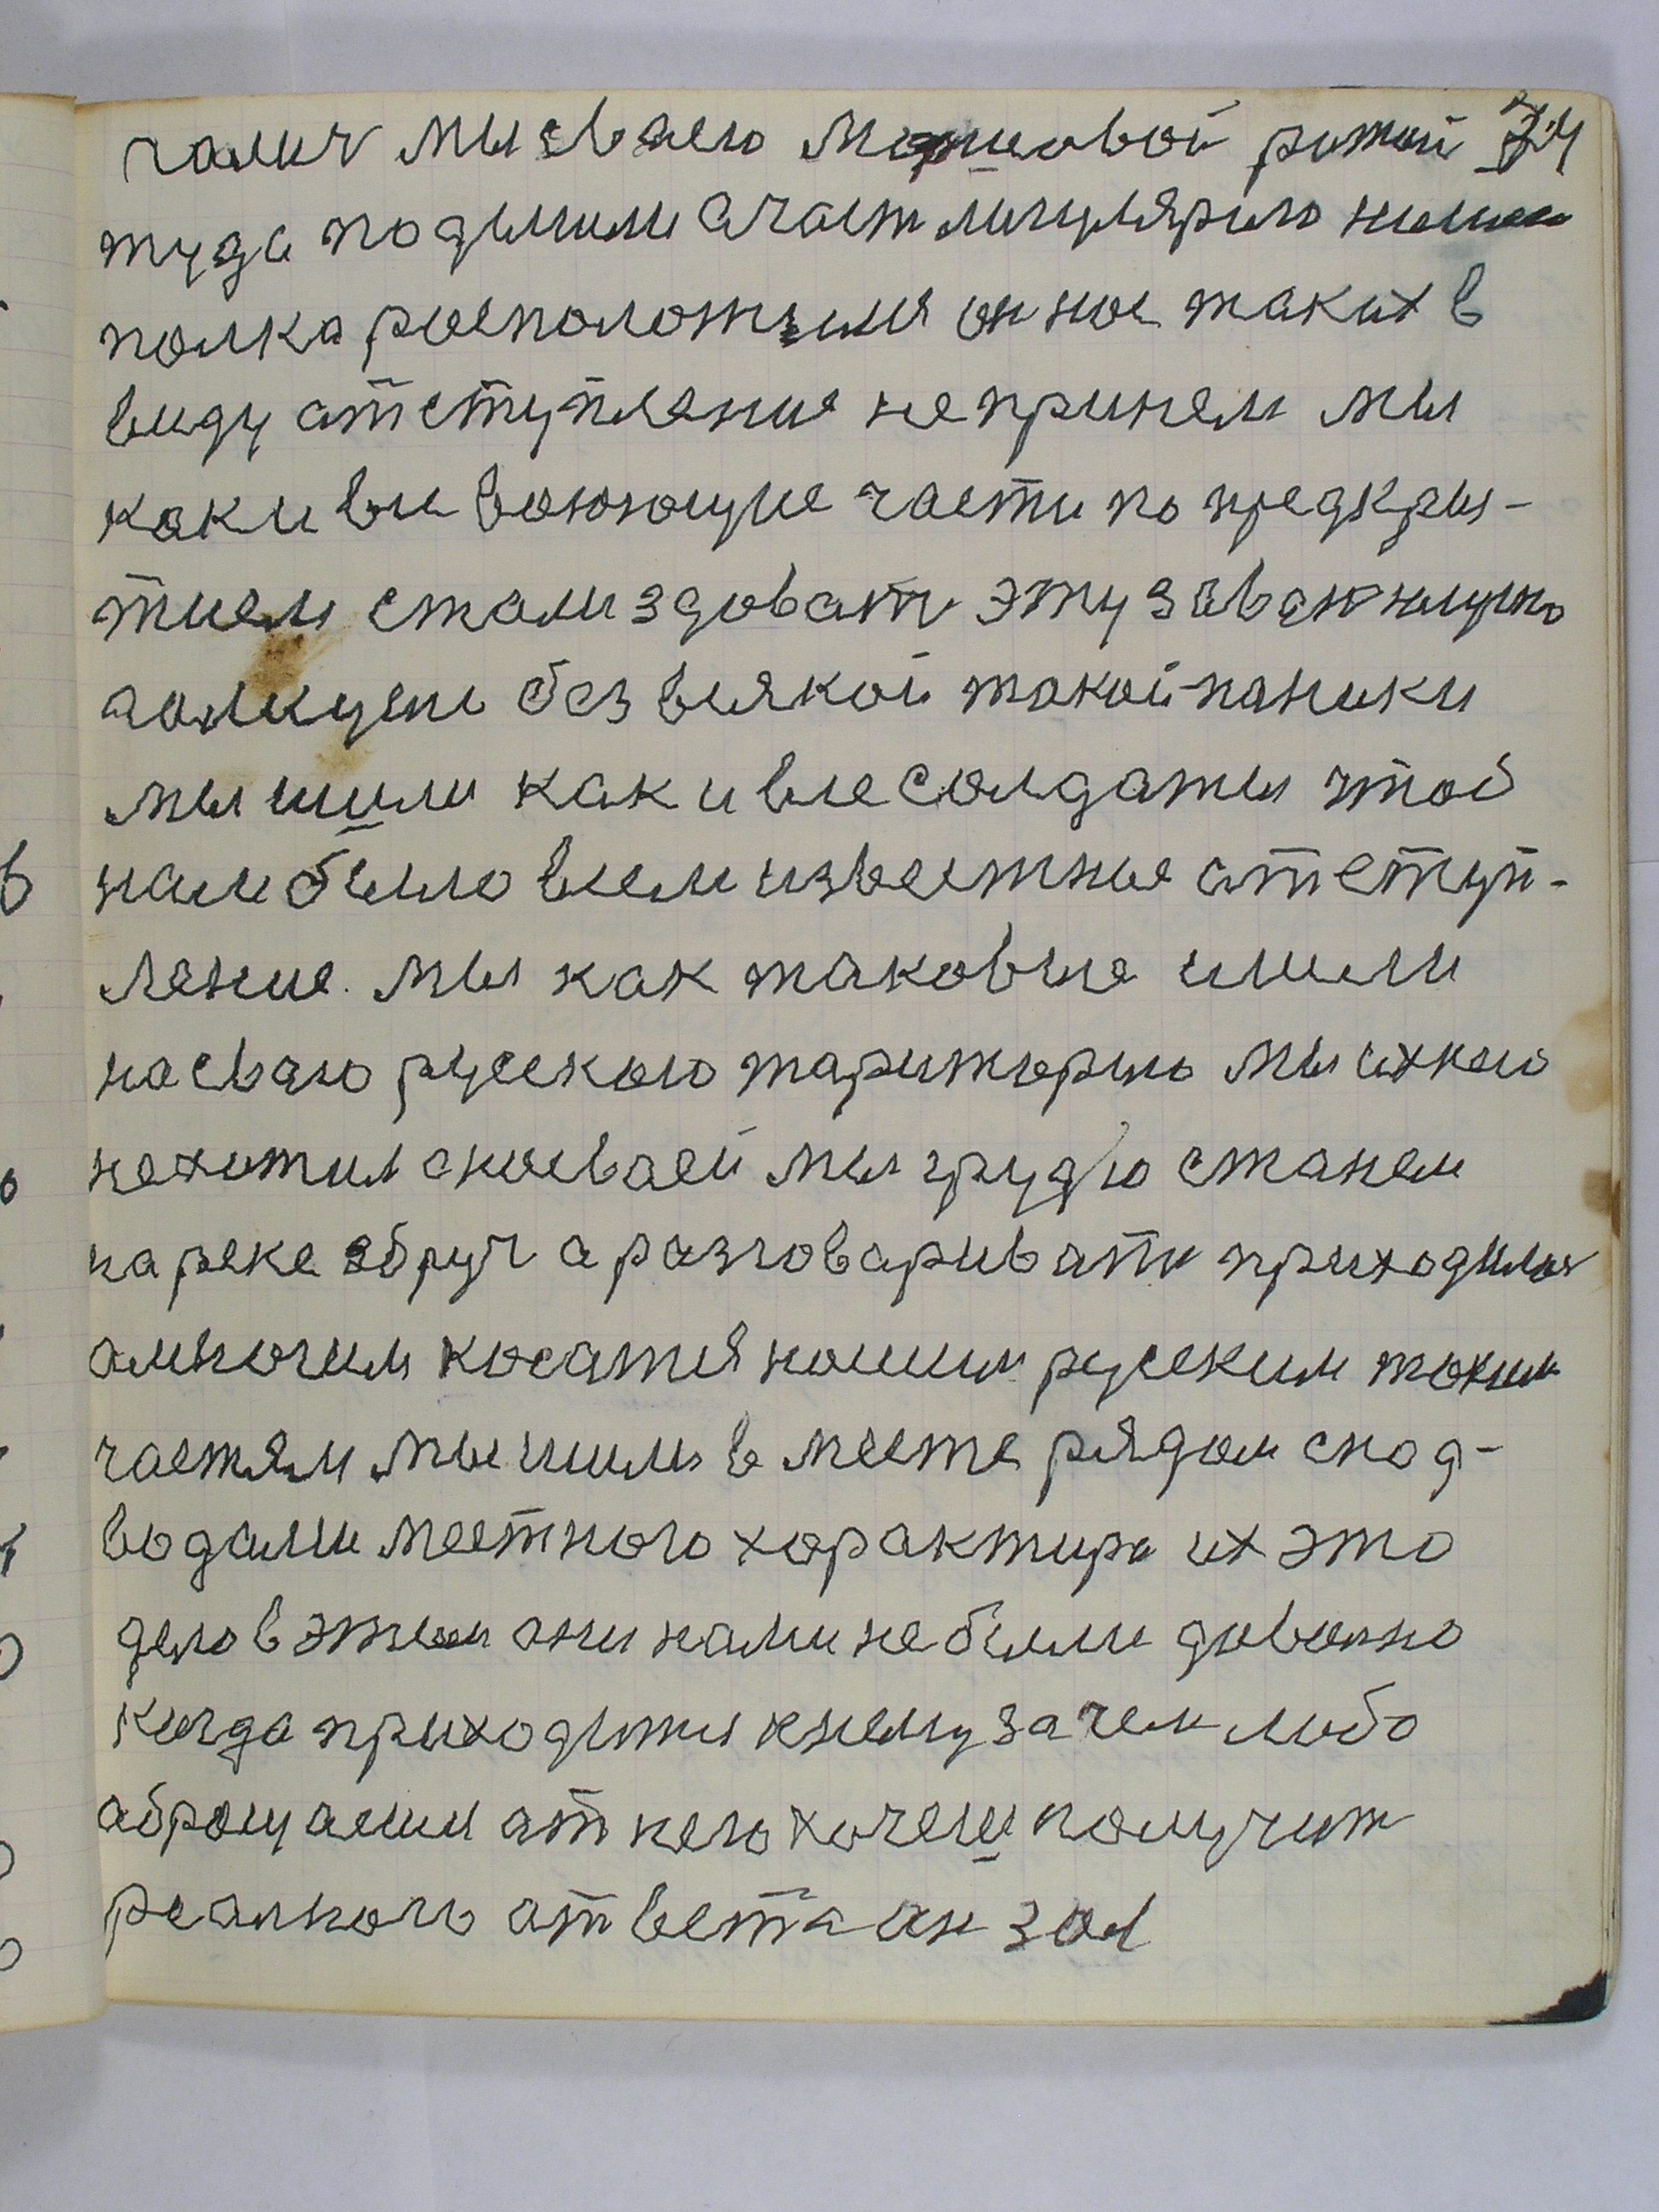 галич мы сваею Маршовой ротой 74
туда подышли счаст мигулярию
полка росположился он нос таких в
виду атступление непринем мы
как и все воюющие части по предкры-
тием стали здовати эту
галицею без всякой такой паники
мы шили как и все солдаты чтоб
нам было всем известные атступ-
ление. мы как таковые имели
насваю русскою тариторию мы ихнею
нехотим сноеваей мы грудю станем
на реке збруч а разговаривати приходился
амногим косатся нашим русским таким
частям мы шили в месте рядом спод-
водами местного характира их это
дело в этим они нами небыли доволно
когда приходится кнему зачем либо
аброщаешся ат него хочеш получит
реалного атвета он зол